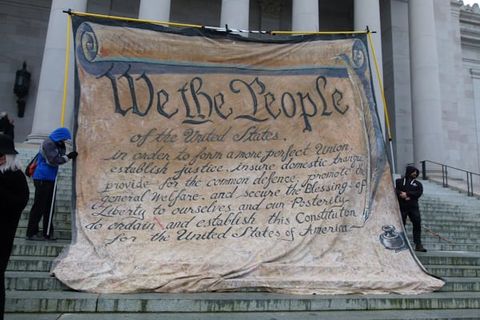 We the People
of the United States,
in order to form a more perfect Union,
establish Justice, insure domestic tranqui
provide for the common defence, promote the
general Welfare, and secure the Blessings of
Liberty to ourselves and our Posterity
do ordain and establish this Constitution
for the United States of America